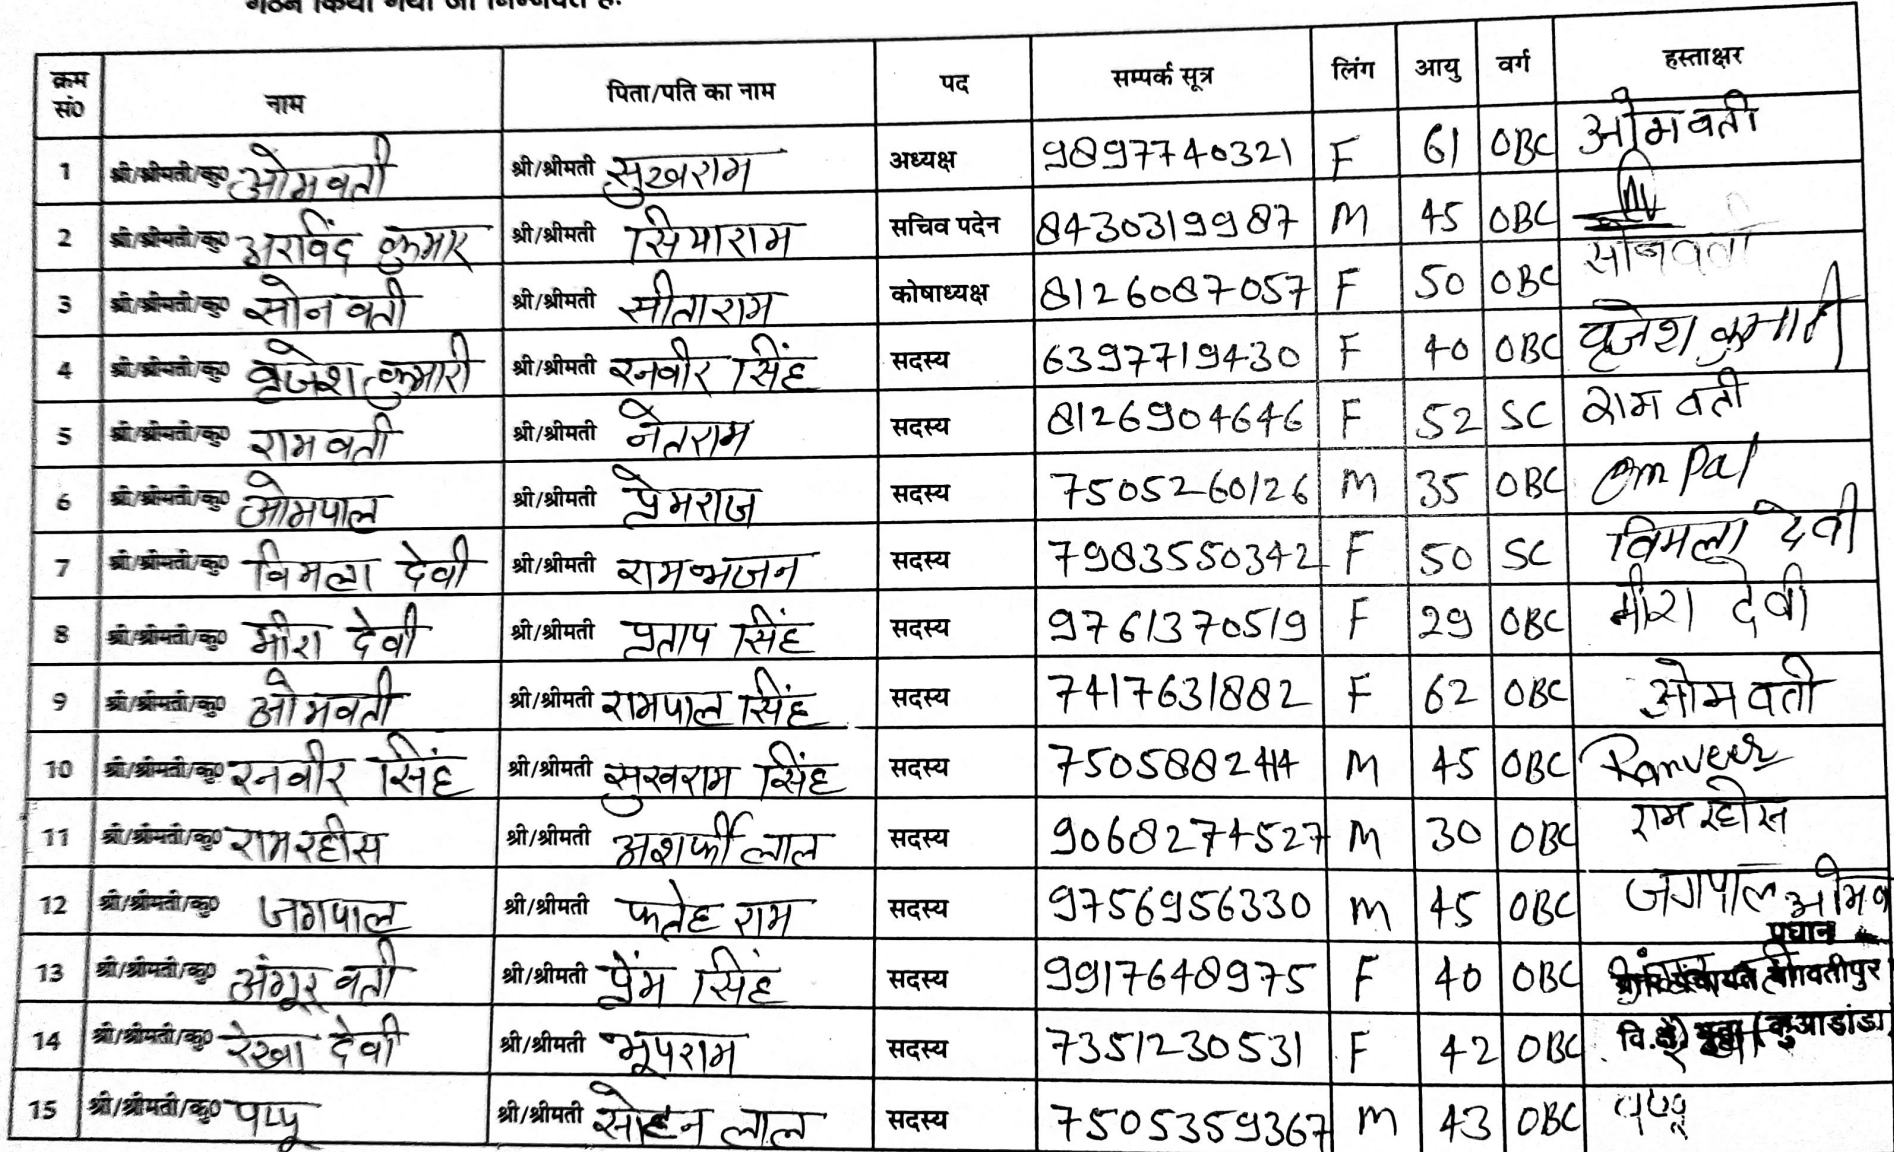 गठन किया गया जो निम्नवत है:
क्रम सं0 नाम पिता/पति का नाम पद सम्पर्क सूत्र लिंग आयु वर्ग हस्ताक्षर
1 श्री/श्रीमती/कु0 ओमवती श्री/श्रीमती सुखराम अध्यक्ष 9897740321 F 61 OBC ओमवती
2 श्री/श्रीमती/कु0 अरविंद कुमार श्री/श्रीमती सियाराम सचिव पदेन 8430319987 M 45 OBC
3 श्री/श्रीमती/कु0 सोनवती श्री/श्रीमती सीताराम कोषाध्यक्ष 8126087057 F 50 OBC सोनवती
4 श्री/श्रीमती/कु0 बृजेश कुमारी श्री/श्रीमती रनवीर सिंह सदस्य 6397719430 F 40 OBC बृजेश कुमारी
5 श्री/श्रीमती/कु0 रामवती श्री/श्रीमती नेतराम सदस्य 8126904646 F 52 SC रामवती
6 श्री/श्रीमती/कु0 ओमपाल श्री/श्रीमती प्रेमराज सदस्य 7505260126 M 35 OBC Om Pal
7 श्री/श्रीमती/कु0 विमला देवी श्री/श्रीमती रामभजन सदस्य 7983550342 F 50 SC विमला देवी
8 श्री/श्रीमती/कु0 मीरा देवी श्री/श्रीमती प्रताप सिंह सदस्य 9761370519 F 29 OBC मीरा देवी
9 श्री/श्रीमती/कु0 ओमवती श्री/श्रीमती रामपाल सिंह सदस्य 7417631882 F 62 OBC ओमवती
10 श्री/श्रीमती/कु0 रनवीर सिंह श्री/श्रीमती सुखराम सिंह सदस्य 7505882414 M 45 OBC Ranveer
11 श्री/श्रीमती/कु0 रामरहीस श्री/श्रीमती अशर्फी लाल सदस्य 9068274527 M 30 OBC रामरहीस
12 श्री/श्रीमती/कु0 जगपाल श्री/श्रीमती फतेह राम सदस्य 9756956330 M 45 OBC जगपाल ओमव
प्रधान
13 श्री/श्रीमती/कु0 अंगूर वती श्री/श्रीमती प्रेम सिंह सदस्य 9917648975 F 40 OBC
14 श्री/श्रीमती/कु0 रेखा देवी श्री/श्रीमती भूपराम सदस्य 7351230531 F 42 OBC वि.क्षे. (कुआडांडा)
15 श्री/श्रीमती/कु0 पप्पू श्री/श्रीमती सोहन लाल सदस्य 7505359367 M 43 OBC पप्पू